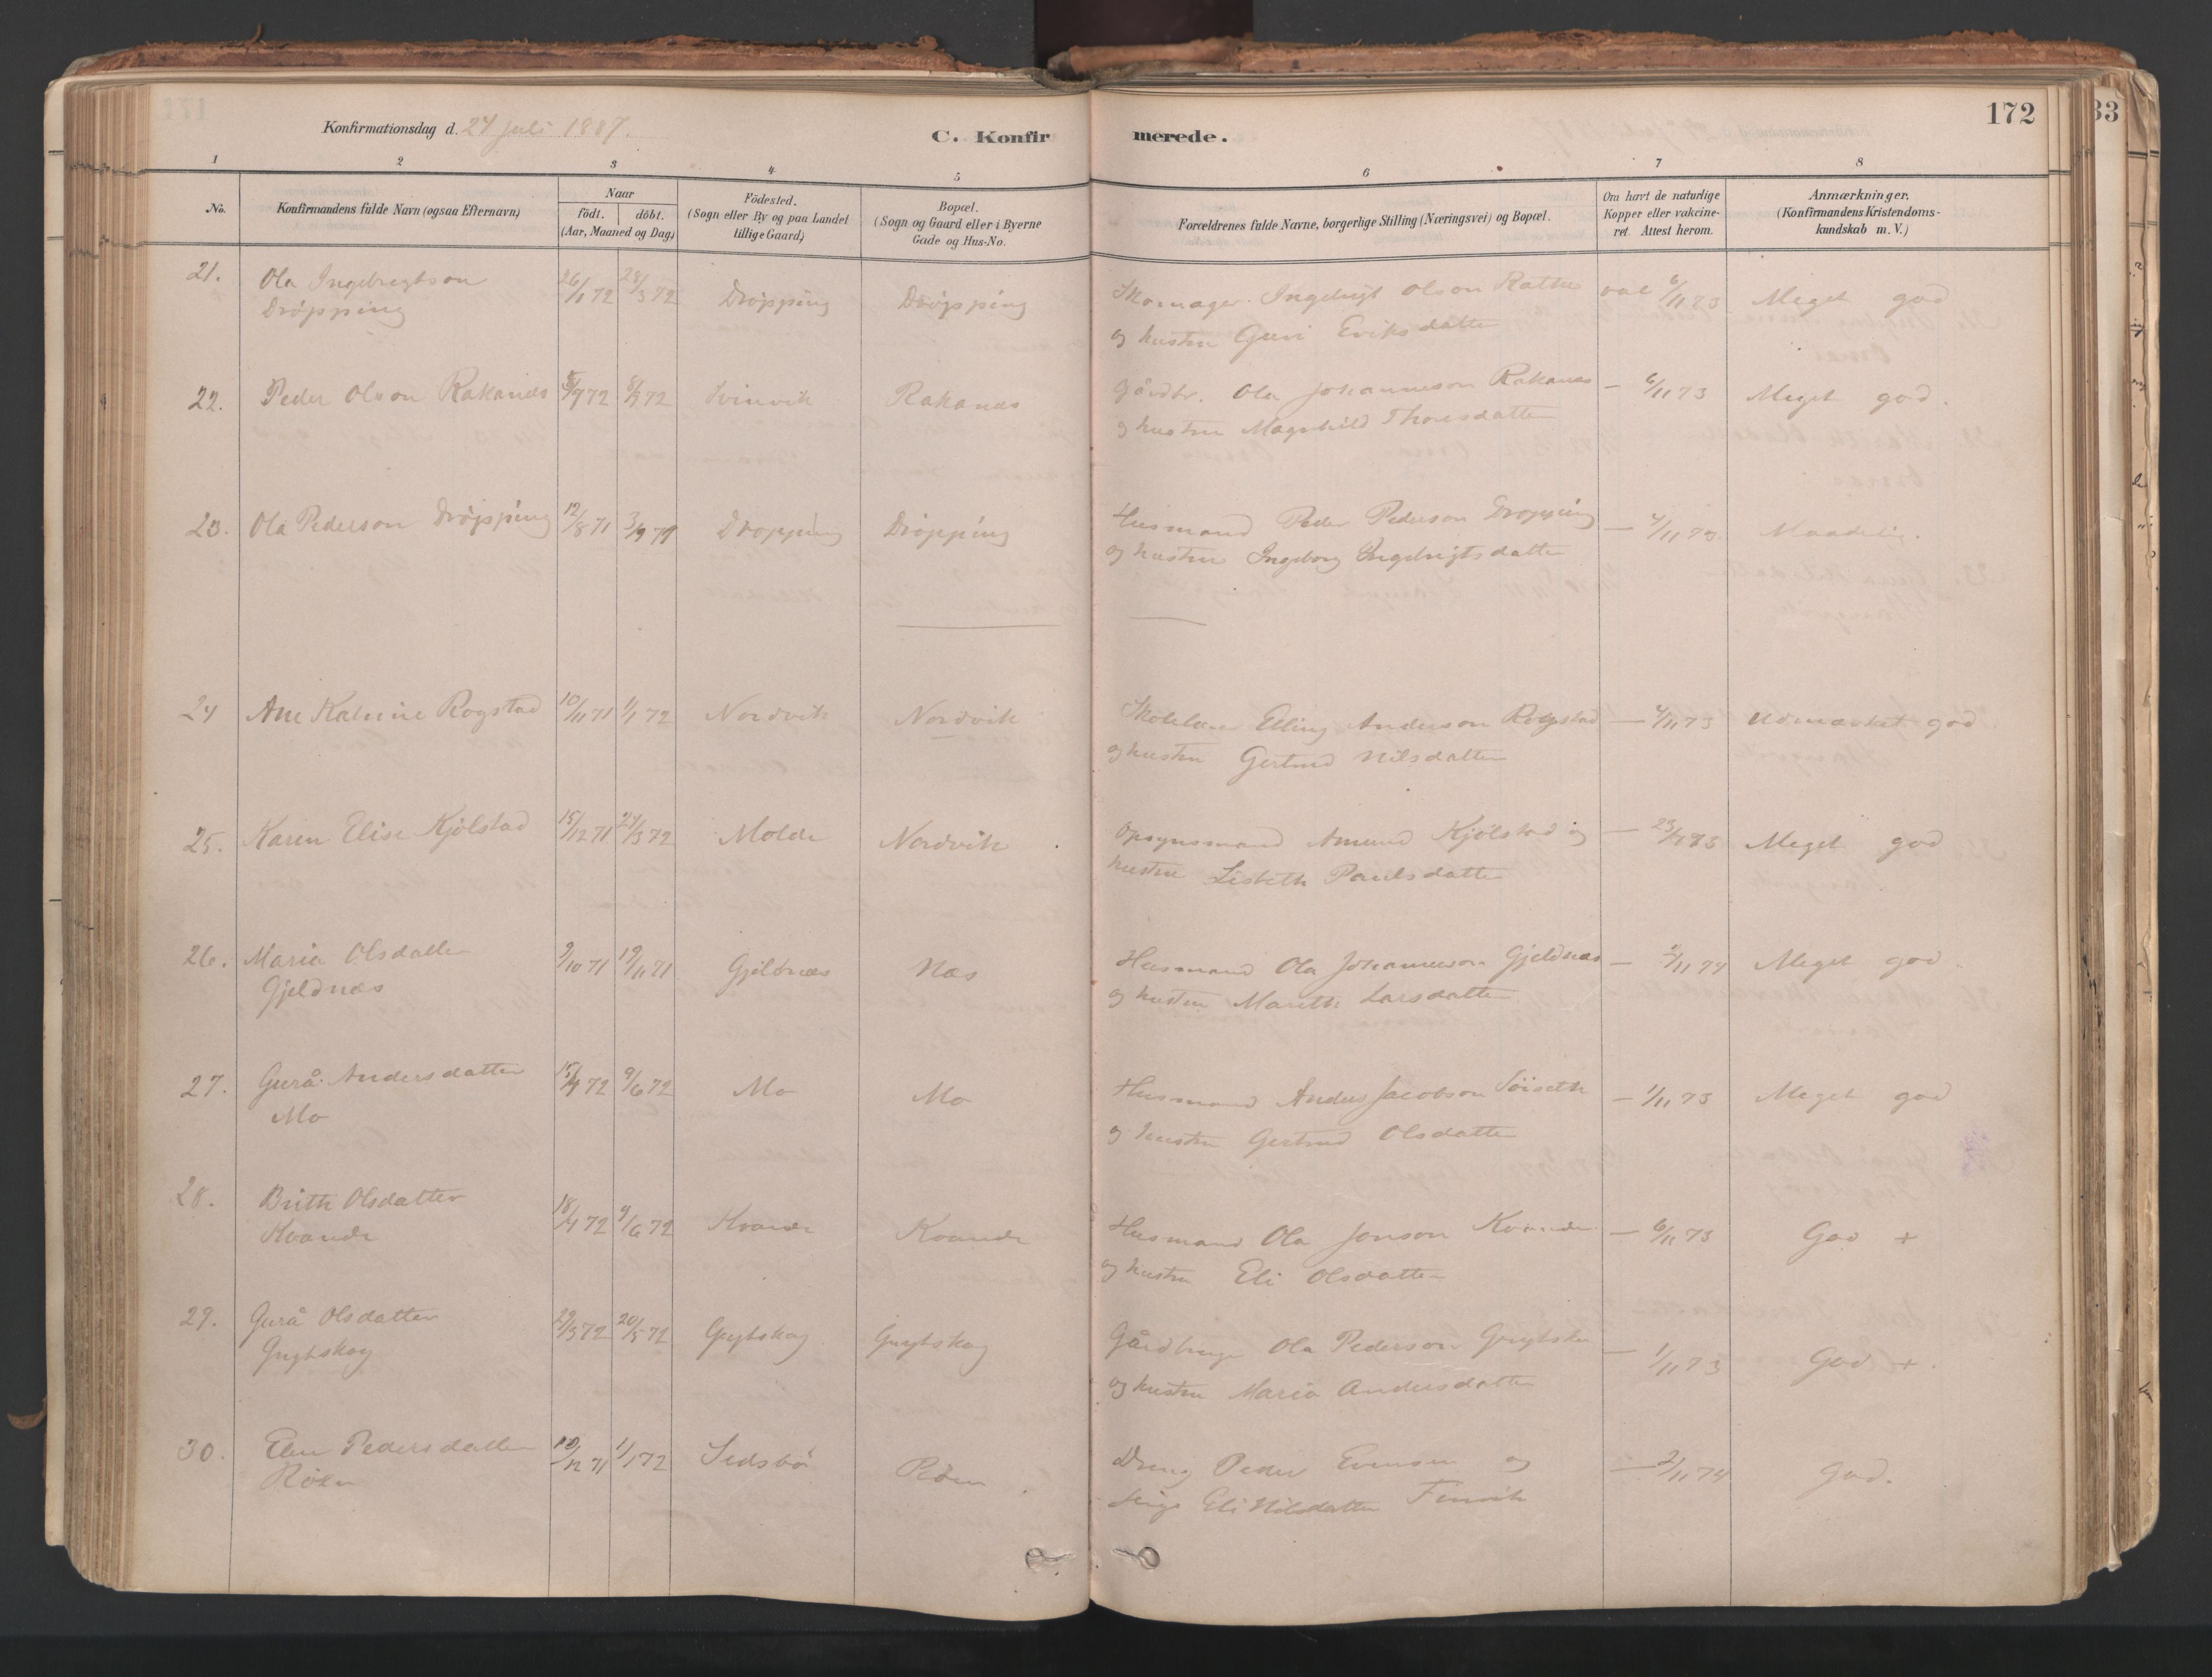 172
33
Konfirmationsdag d. 24 Juli 1887.
C. Konfirmerede.
1 2 3 4 5 6 7 8
No.
Konfirmandens fulde Navn (ogsaa Efternavn)
Naar
födt. döbt.
(Aar, Maaned og Dag)
Födested.
(Sogn eller By og paa Landet
tillige Gaard)
Bopæl.
(Sogn og Gaard eller i Byerne
Gade og Hus-No.
Forældrenes fulde Navne, borgerlige Stilling (Næringsvei) og Bopæl.
Om havt de naturlige
Kopper eller vakcine-
ret. Attest herom.
Anmærkninger.
(Konfirmandens Kristendoms-
kundskab m. V.)
21. Ola Ingebrigtson 26/1 72 28/3 72 Dröpping Dröpping Skomager Ingebrigt Olson 6/11 73 Meget god
Dröpping og hustru Guri Eriksdatter
22. Peder Olson Rakanes 7 72 72 Rakanes Gårdbr. Ola Johanneson Rakanes — 6/11 73 Meget god.
og hustru Magnhild Thoresdatter
23. Ola Pederson Dröpping 12/8 71 3/9 71 Dröpping Dröpping Husmand Peder Pederson Dröpping — 4/11 73 Maadelig.
og hustru Ingeborg Ingebrigtsdatter
24 Ane Katrine Rogstad 10/11 71 1/1 72 Nordvik Nordvik Elling Anderson Rogstad — 4/11 73 Udmærket god
og hustru Gertrud Nilsdatter
25. Karen Elise Kjölstad 15/12 71 24/3 72 Molde Nordvik Opsynsmand Amund Kjölstad og — Meget god
hustru Lisbeth Paulsdatter
26. Maria Olsdatter 9/10 71 19/11 71 Gjeldnæs Næs Husmand Ola Johanneson Gjeldnæs — 2/11 74 Meget god
Gjeldnæs og hustru Mareth Larsdatter
27. Gurå Andersdatter 15/4 72 9/6 72 Mo Mo Husmand Anders Jacobson — 1/11 73 Meget god
Mo og hustru Gertrud Olsdatter
28. Brith Olsdatter 18/4 72 9/6 72 Kvande Kvande Husmand Ola Jonson Kvande — 6/11 73 God +
Kvande og hustru Eli Olsdatter
29. Gurå Olsdatter 3 72 20/5 72 Grytskog Grytskog Gårdbruger Ola Pederson — 1/11 73 God +
Grytskog og hustru Maria Andersdatter
30. Elen Pedersdatter 12 71 1/1 72 Röen Dreng Peder Evensen og — 2/11 74 God.
Röen Pige Eli Nilsdatter